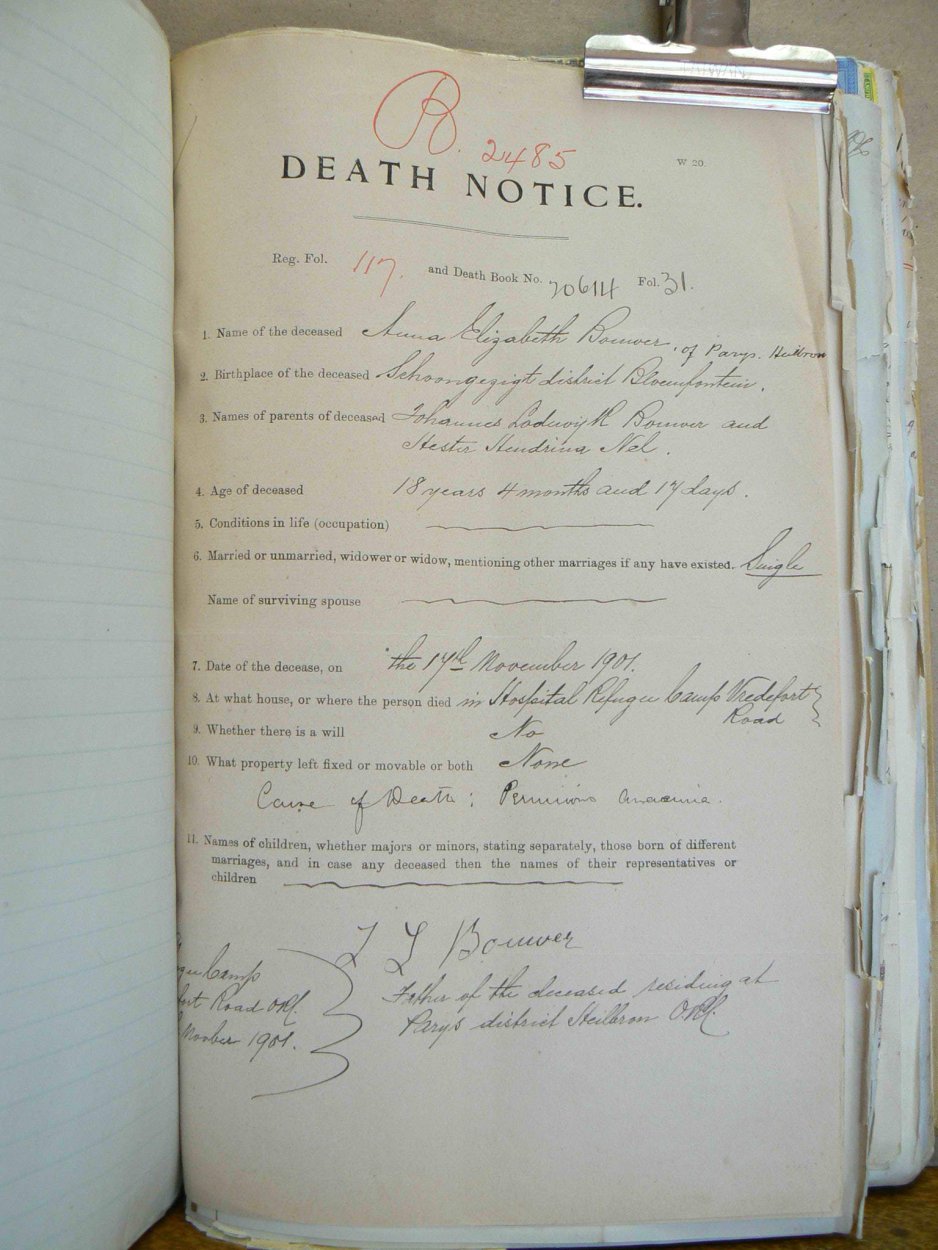 R. 2485
W 20.
DEATH NOTICE.
Reg. Fol. 117. and Death Book No. 20614 Fol. 31.
1. Name of the deceased Anna Elizabeth Bouwer, of Parys. Heilbron
2. Birthplace of the deceased Schoongezigt district Bloemfontein.
3. Names of parents of deceased Johannes Lodewijk Bouwer and
Hester Hendrina Nel.
4. Age of deceased 18 years 4 months and 17 days.
5. Conditions in life (occupation)
6. Married or unmarried, widower or widow, mentioning other marriages if any have existed. Single
Name of surviving spouse
7. Date of the decease, on the 17th November 1901.
8. At what house, or where the person died in Hospital Refugee Camp Vredefort
Road
9. Whether there is a will No
10. What property left fixed or movable or both None
Cause of Death: Pernicious Anaemia.
11. Names of children, whether majors or minors, stating separately, those born of different
marriages, and in case any deceased then the names of their representatives or
children
J L Bouwer
Father of the deceased residing at
Parys district Heilbron ORC
gee Camp
fort Road ORC.
1901.